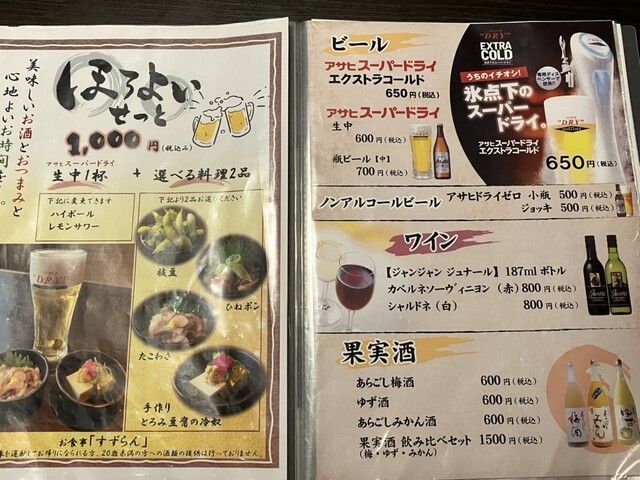 美味しいお酒とおつまみと
心地よいお時間を。
ほろよい
せっと
1,000円(税込み)
アサヒスーパードライ
生中1杯 + 選べる料理2品
下記に変更できます
ハイボール
レモンサワー
下記より2品お選びください
枝豆
ひねポン
たこわさ
手作り
とろみ豆腐の冷奴
お食事「すずらん」
を運転してお帰りになられる方、20歳未満の方への酒類の提供は行っておりません。
ビール
アサヒスーパードライ
エクストラコールド
650円(税込)
アサヒスーパードライ
生中
600円(税込)
瓶ビール【中】
700円(税込)
"DRY"
EXTRA
COLD
うちのイチオシ!
専用ディス
ペンサーで
提供!!
氷点下の
スーパー
ドライ。
アサヒスーパードライ
エクストラコールド
650円(税込)
ノンアルコールビール アサヒドライゼロ 小瓶 500円(税込)
ジョッキ 500円(税込)
ワイン
【ジャンジャン ジュナール】187mlボトル
カベルネソーヴィニヨン(赤)800円(税込)
シャルドネ(白) 800円(税込)
果実酒
あらごし梅酒 600円(税込)
ゆず酒 600円(税込)
あらごしみかん酒 600円(税込)
果実酒 飲み比べセット 1500円(税込)
(梅・ゆず・みかん)
梅酒
みかん
ゆず